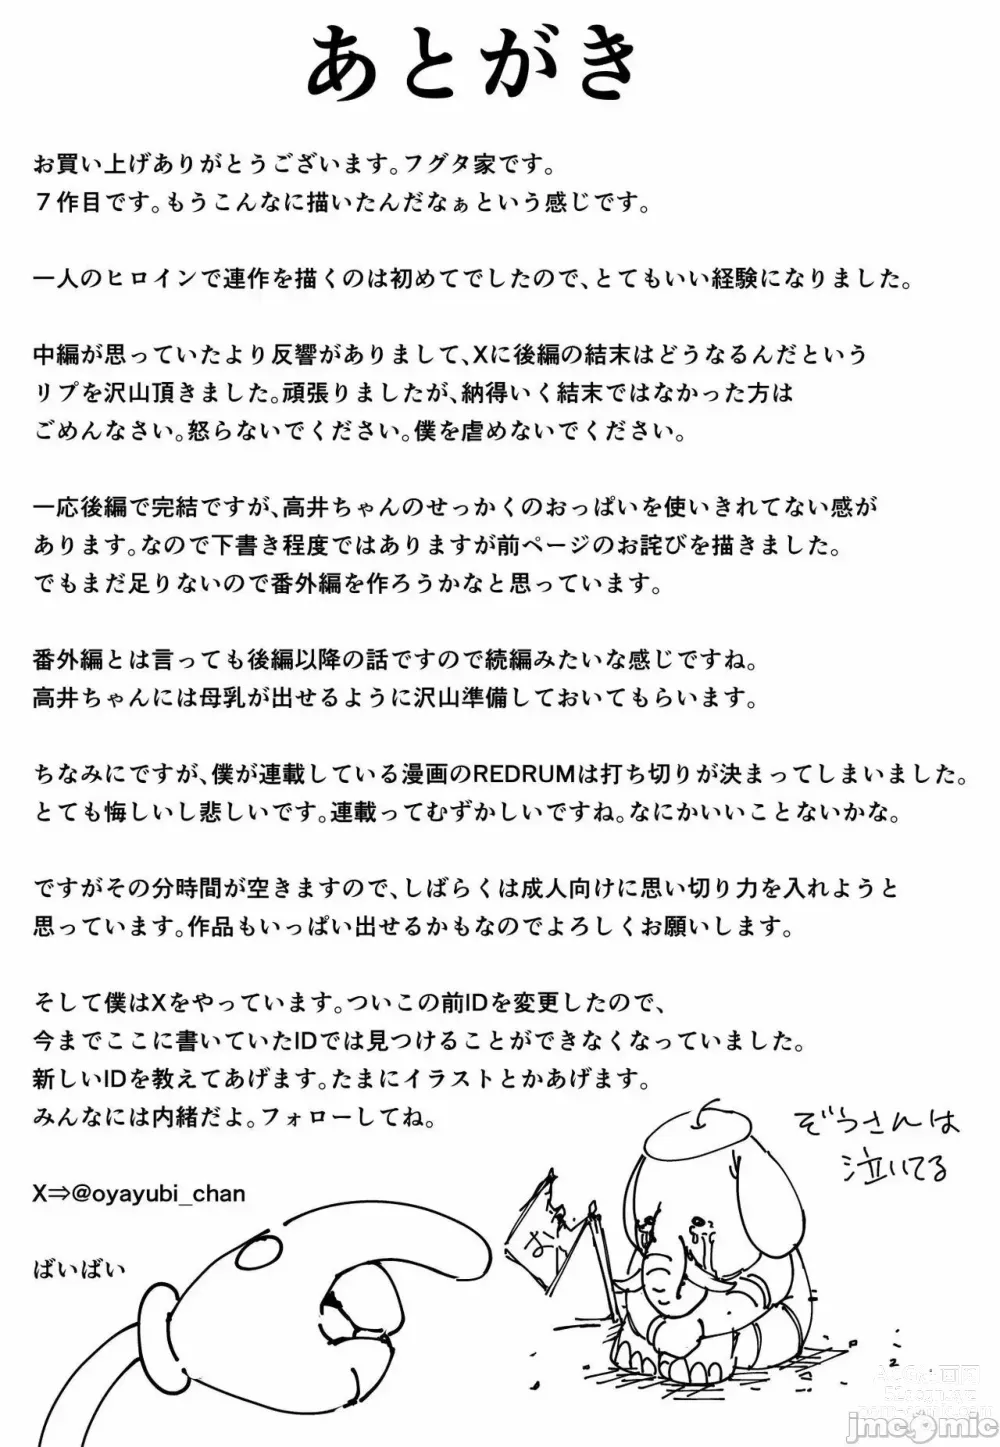 あとがき
お買い上げありがとうございます。フグタ家です。
７作目です。もうこんなに描いたんだなぁという感じです。
一人のヒロインで連作を描くのは初めてでしたので、とてもいい経験になりました。
中編が思っていたより反響がありまして、Xに後編の結末はどうなるんだという
リプを沢山頂きました。頑張りましたが、納得いく結末ではなかった方は
ごめんなさい。怒らないでください。僕を虐めないでください。
一応後編で完結ですが、高井ちゃんのせっかくのおっぱいを使いきれてない感が
あります。なので下書き程度ではありますが前ページのお詫びを描きました。
でもまだ足りないので番外編を作ろうかなと思っています。
番外編とは言っても後編以降の話ですので続編みたいな感じですね。
高井ちゃんには母乳が出せるように沢山準備しておいてもらいます。
ちなみにですが、僕が連載している漫画のREDRUMは打ち切りが決まってしまいました。
とても悔しいし悲しいです。連載ってむずかしいですね。なにかいいことないかな。
ですがその分時間が空きますので、しばらくは成人向けに思い切り力を入れようと
思っています。作品もいっぱい出せるかもなのでよろしくお願いします。
そして僕はXをやっています。ついこの前IDを変更したので、
今までここに書いていたIDでは見つけることができなくなっていました。
新しいIDを教えてあげます。たまにイラストとかあげます。
みんなには内緒だよ。フォローしてね。
ぞうさんは
泣いてる
X⇒@oyayubi_chan
ばいばい
jmcomic